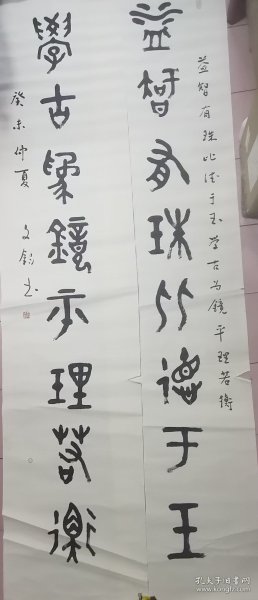 益智有珠比德于玉學古为鏡平理若衡
益智有珠比德于玉
學古為鏡平理若衡
癸未仲夏
文
书
孔夫子旧书网